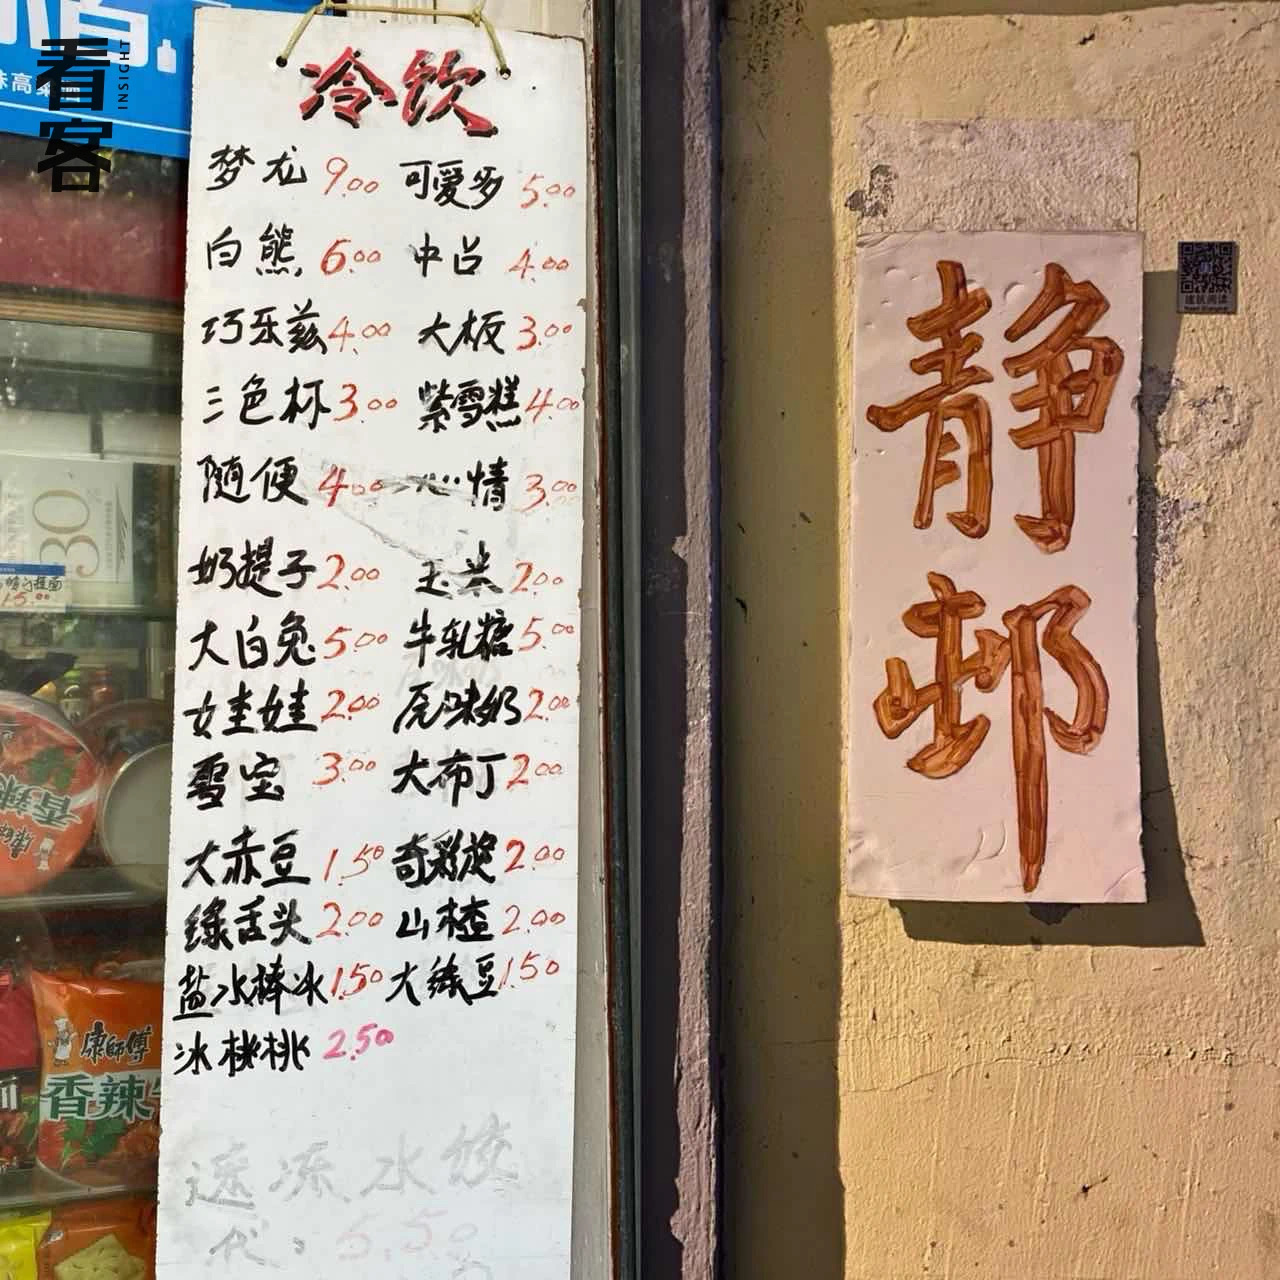 看客
INSIGHT
冷饮
梦龙 9.00 可爱多 5.00
白熊 6.00 中占 4.00
巧乐兹 4.00 大板 3.00
三色杯 3.00 紫雪糕 4.00
随便 4.00 心情 3.00
奶提子 2.00 玉米 2.00
大白兔 5.00 牛轧糖 5.00
女圭娃 2.00 原味奶 2.00
雪宝 3.00 大布丁 2.00
大赤豆 1.50 奇彩旋 2.00
绿舌头 2.00 山楂 2.00
盐水棒冰 1.50 大绿豆 1.50
冰桃桃 2.50
速冻水饺
代: 5.50
静邨
建筑阅读
30
15.00
康師傅
香辣
香辣